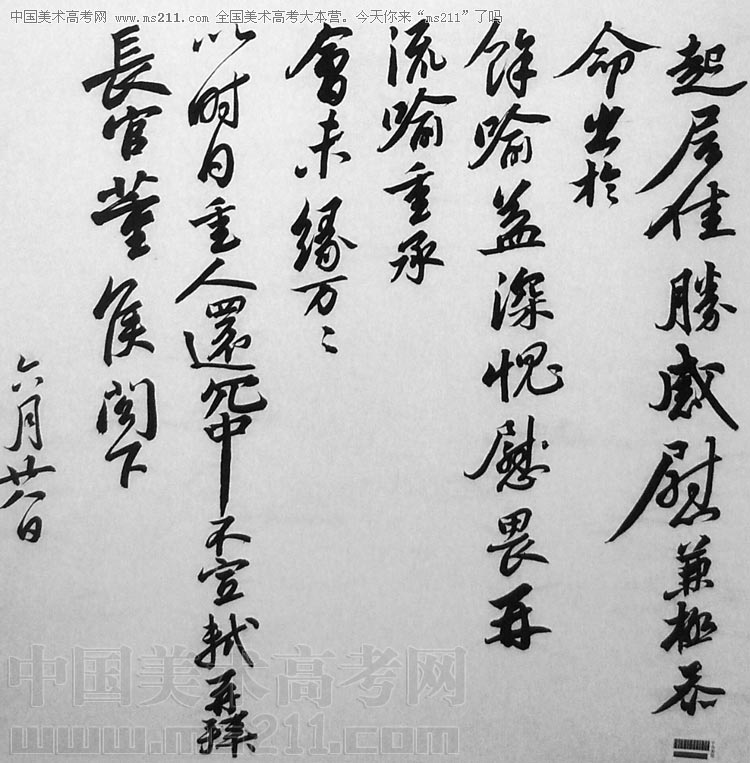 中国美术高考网 www.ms211.com 全国美术高考大本营。今天你来“ms211”了吗
起居佳勝感慰兼極忝
命出於
餘喻益深愧慰畏再
流喻重承
會未緣万〻
以时日重人還冗中不宣軾再拜
長官董侯閣下
六月廿八日
中国美术高考网
www.ms211.com